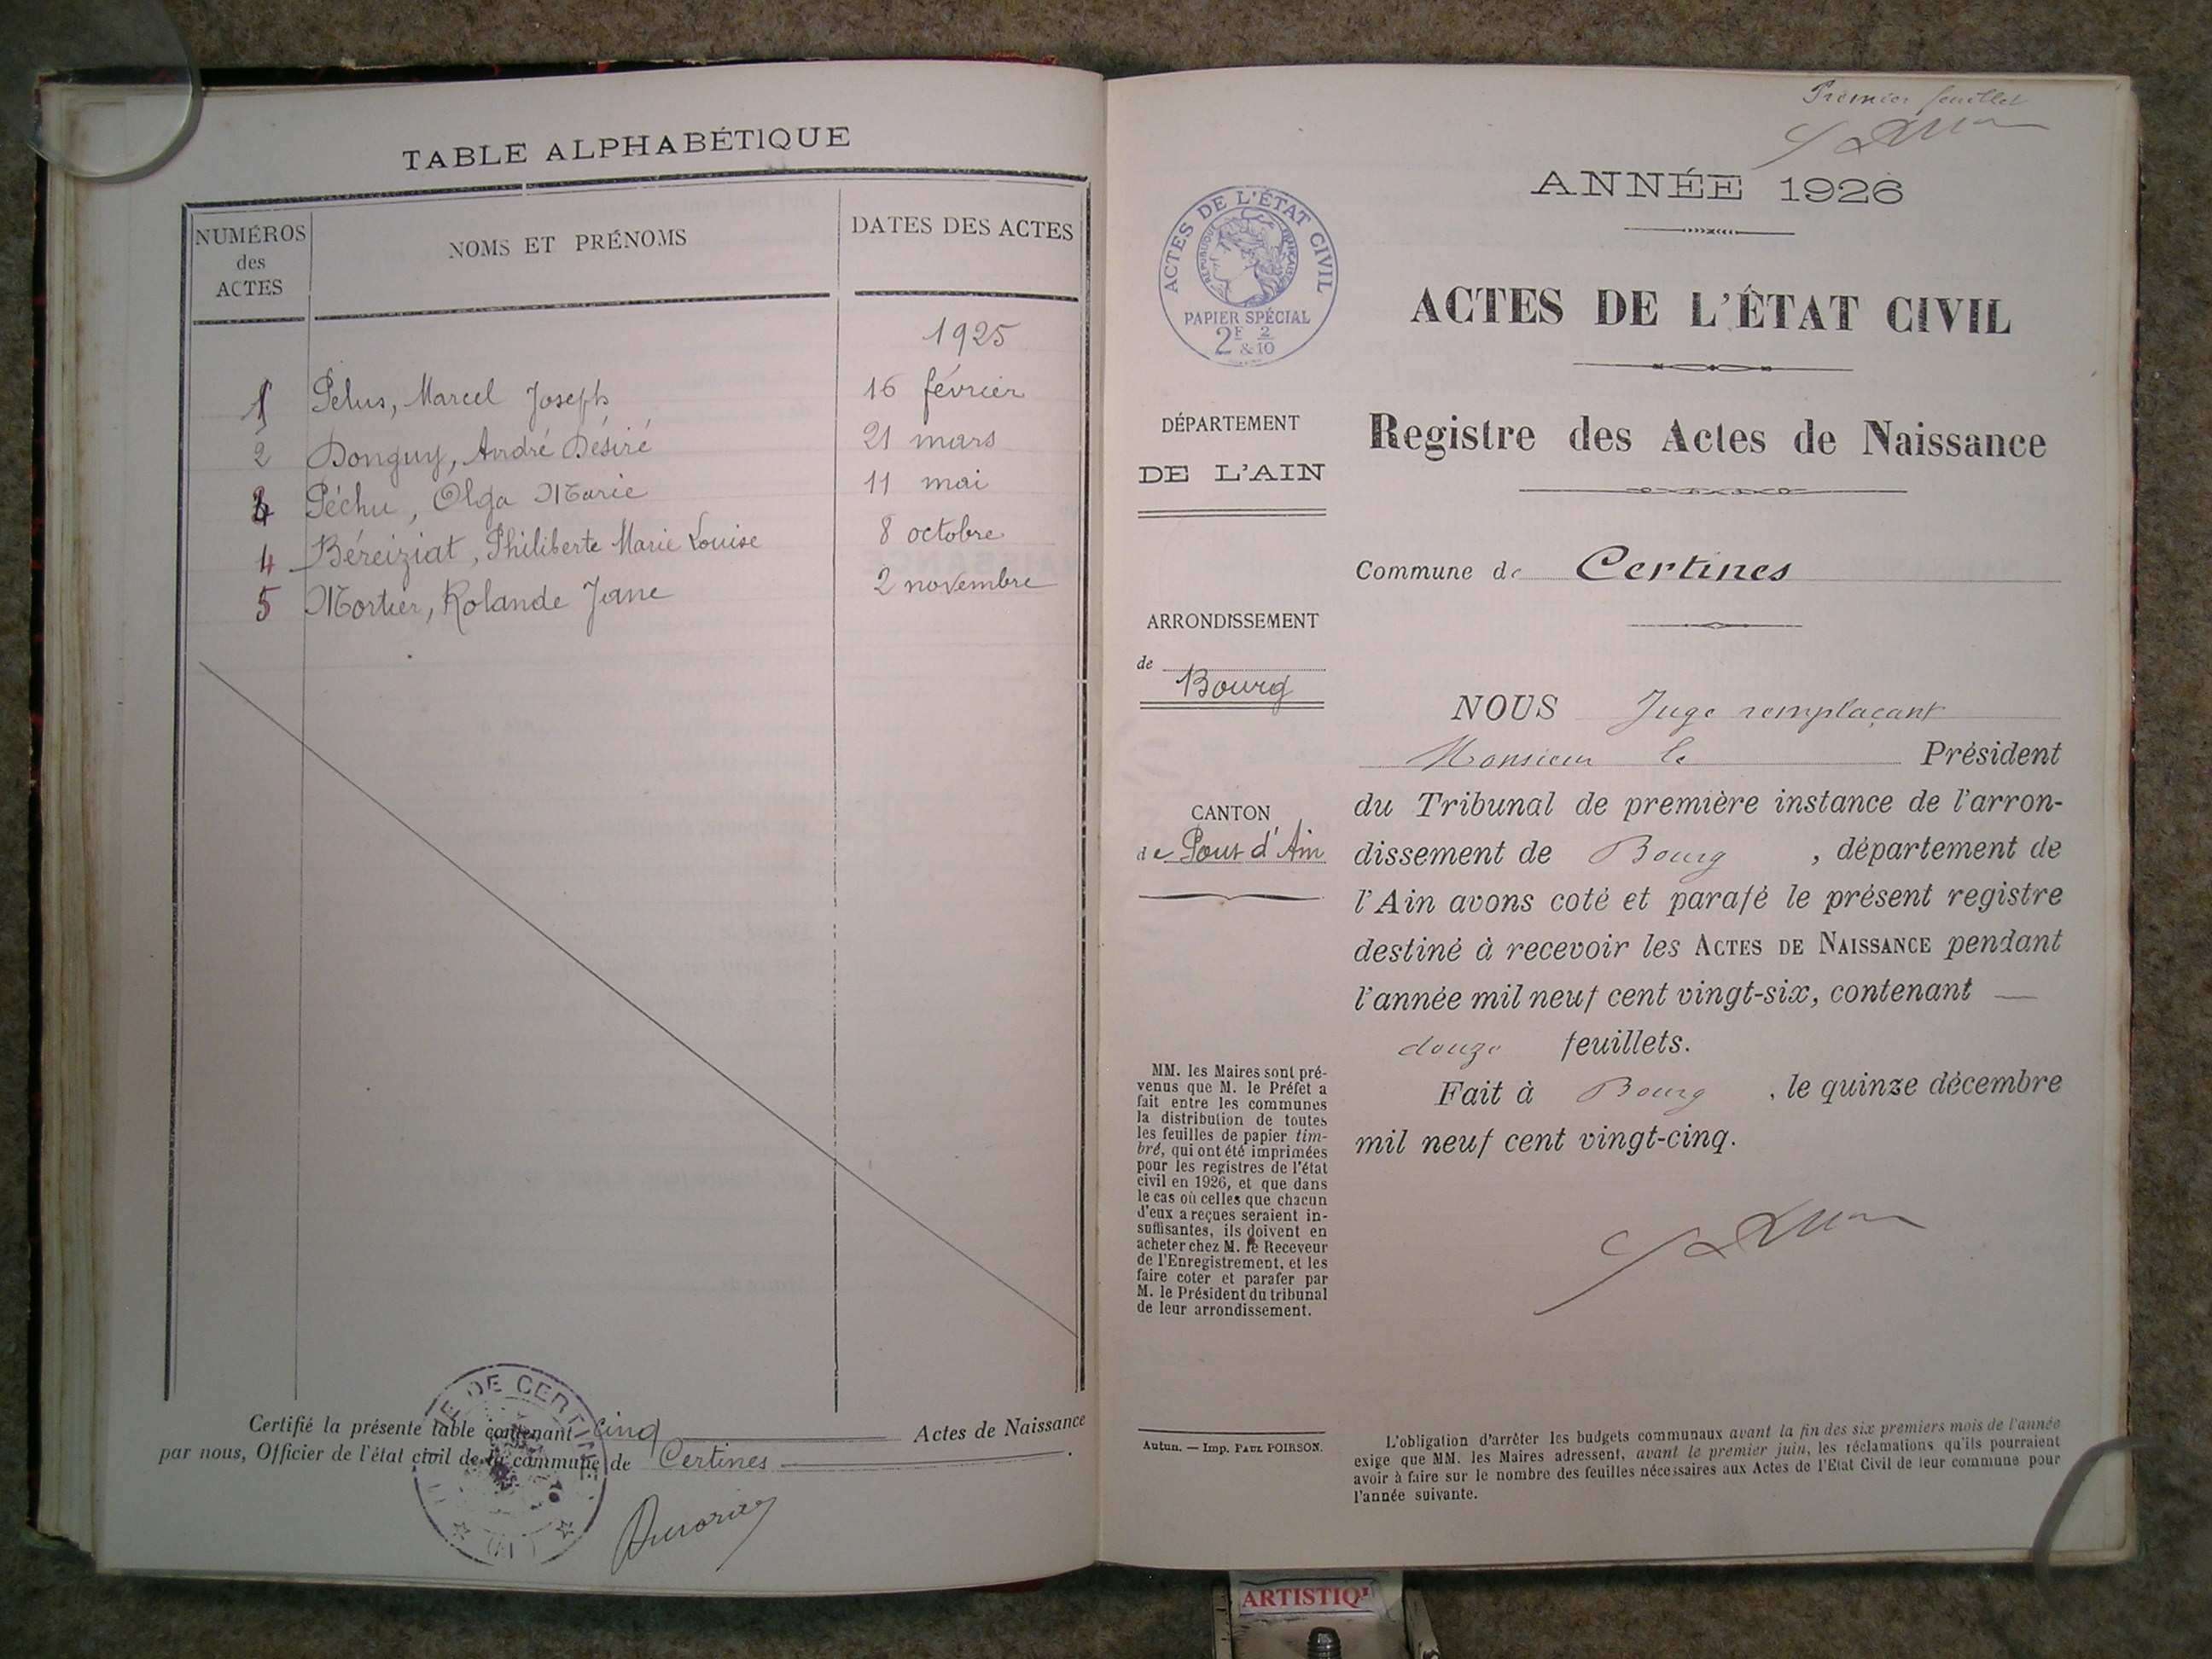 TABLE ALPHABÉTIQUE
NUMÉROS
des
ACTES
NOMS ET PRÉNOMS
DATES DES ACTES
1925
1 Pelus, Marcel Joseph 16 février
2 Donguy, André Désiré 21 mars
3 Péchu, Olga Marie 11 mai
4 Béreiziat, Philiberte Marie Louise 8 octobre
5 Mortier, Rolande Jane 2 novembre
Certifié la présente table contenant cinq Actes de Naissance
par nous, Officier de l'état civil de la commune de Certines.
DE CERTINES
Premier feuillet
ANNÉE 1926
ACTES DE L'ÉTAT CIVIL
RÉPUBLIQUE FRANÇAISE
PAPIER SPÉCIAL
2F 2
&10
ACTES DE L'ÉTAT CIVIL
Registre des Actes de Naissance
DÉPARTEMENT
DE L'AIN
Commune de Certines
ARRONDISSEMENT
de
Bourg
CANTON
de Pont d'Ain
NOUS Juge remplaçant
Monsieur le Président
du Tribunal de première instance de l'arron-
dissement de Bourg, département de
l'Ain avons coté et parafé le présent registre
destiné à recevoir les ACTES DE NAISSANCE pendant
l'année mil neuf cent vingt-six, contenant —
douze feuillets.
Fait à Bourg, le quinze décembre
mil neuf cent vingt-cinq.
MM. les Maires sont pré-
venus que M. le Préfet a
fait entre les communes
la distribution de toutes
les feuilles de papier tim-
bré, qui ont été imprimées
pour les registres de l'état
civil en 1926, et que dans
le cas où celles que chacun
d'eux a reçues seraient in-
suffisantes, ils doivent en
acheter chez M. le Receveur
de l'Enregistrement, et les
faire coter et parafer par
M. le Président du tribunal
de leur arrondissement.
Autun. — Imp. PAUL POIRSON.
L'obligation d'arrêter les budgets communaux avant la fin des six premiers mois de l'année
exige que MM. les Maires adressent, avant le premier juin, les réclamations qu'ils pourraient
avoir à faire sur le nombre des feuilles nécessaires aux Actes de l'Etat Civil de leur commune pour
l'année suivante.
ARTISTIQ